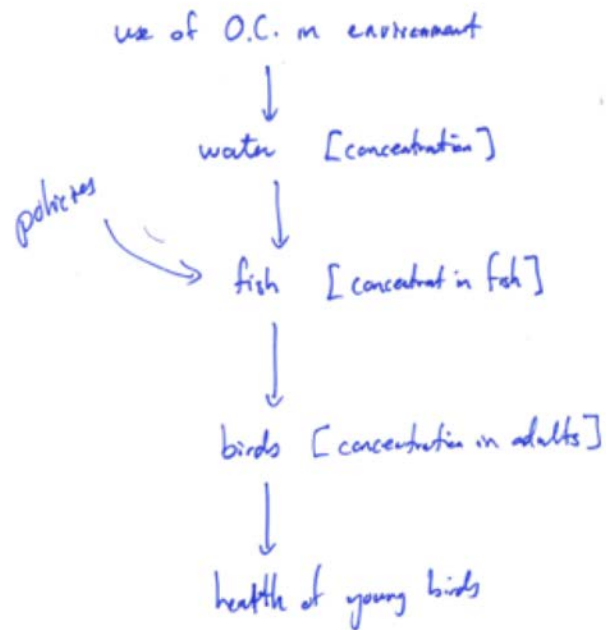 use of O.C. in environment
water [concentration]
policies
fish [concentrat in fish]
birds [concentration in adults]
health of young birds